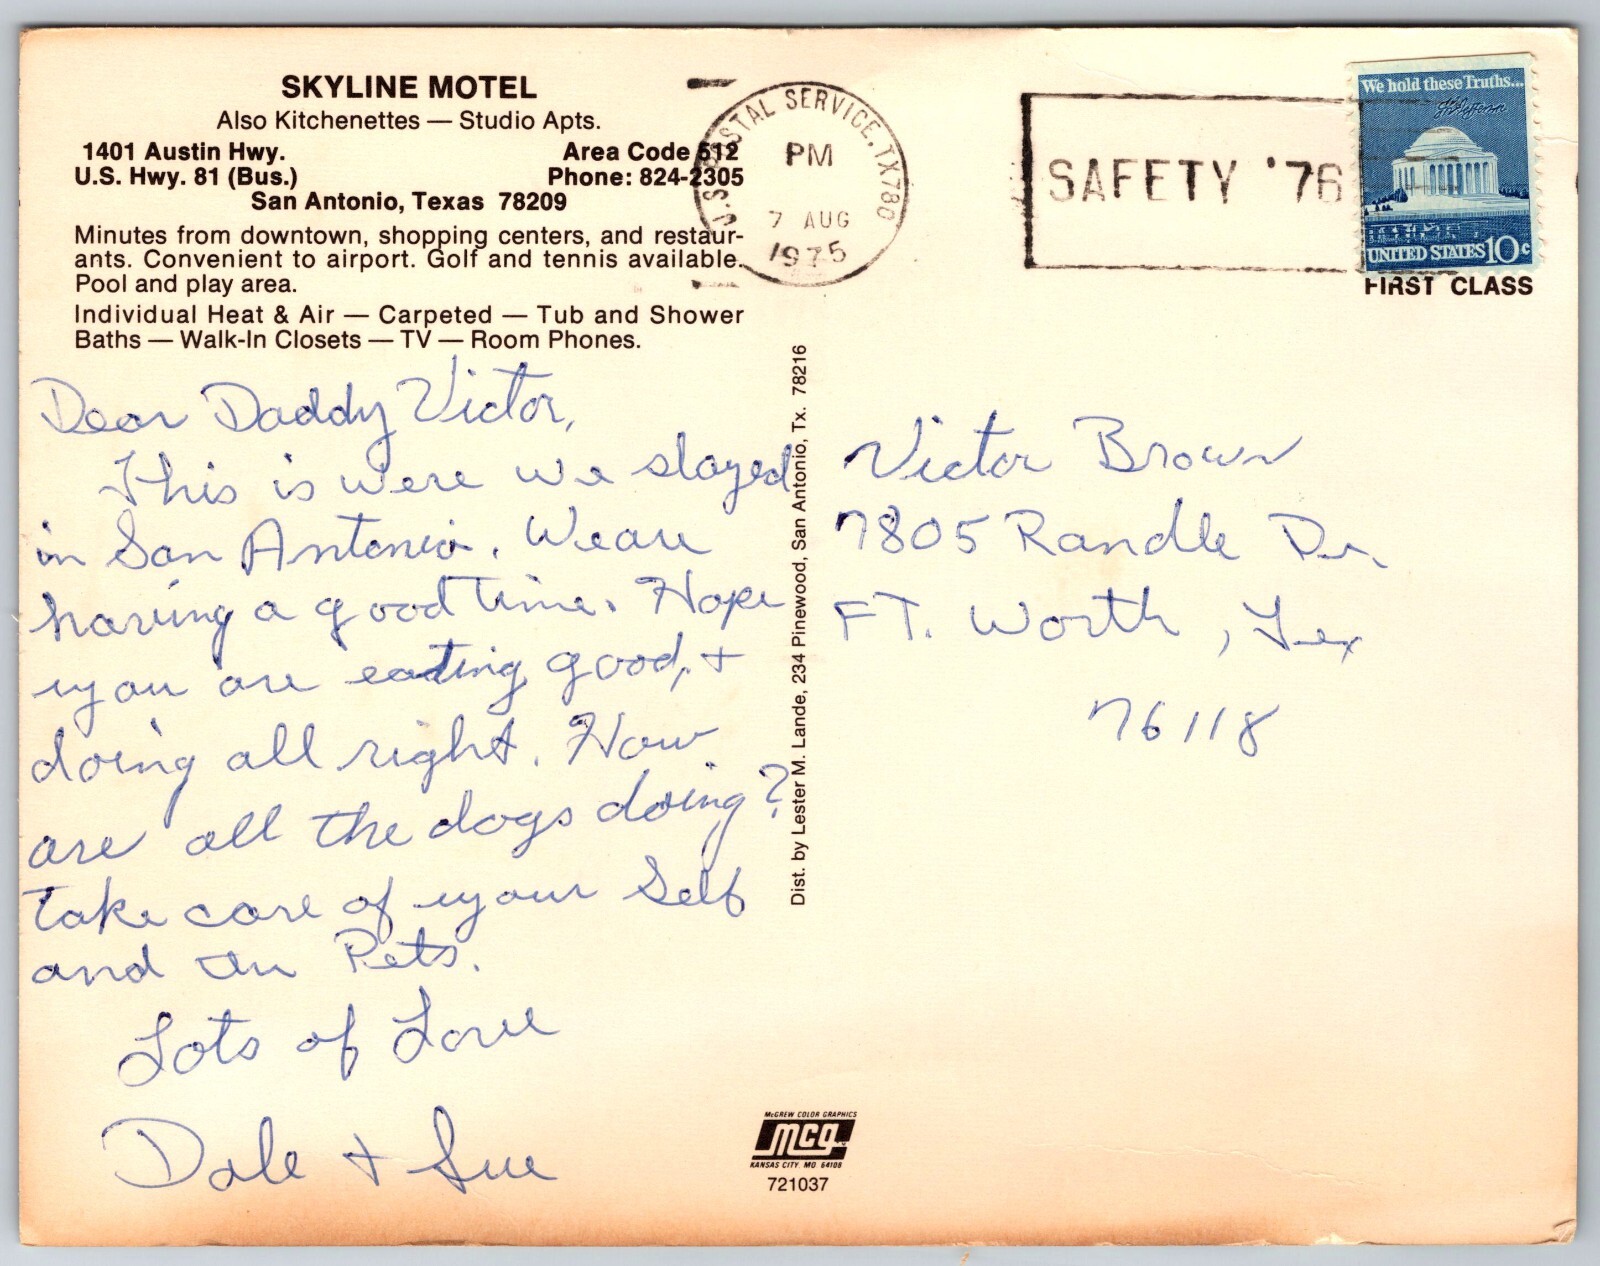 SKYLINE MOTEL
Also Kitchenettes — Studio Apts.
1401 Austin Hwy. Area Code 512
U.S. Hwy. 81 (Bus.) Phone: 824-2305
San Antonio, Texas 78209
Minutes from downtown, shopping centers, and restaur-
ants. Convenient to airport. Golf and tennis available.
Pool and play area.
Individual Heat & Air — Carpeted — Tub and Shower
Baths — Walk-In Closets — TV — Room Phones.
U.S. POSTAL SERVICE, TX 780
PM
7 AUG
1975
SAFETY '76
We hold these Truths...
UNITED STATES 10c
FIRST CLASS
Dear Daddy Victor,
This is were we stayed
in San Antonio. We are
having a good time. Hope
you are eating good, +
doing all right. How
are all the dogs doing?
Take care of your Self
and the Pets.
Lots of Love
Dale + Sue
Dist. by Lester M. Lande, 234 Pinewood, San Antonio, Tx. 78216
Victor Brown
7805 Randle Dr.
FT. Worth, Tex
76118
McGREW COLOR GRAPHICS
mcg
KANSAS CITY, MO 64108
721037